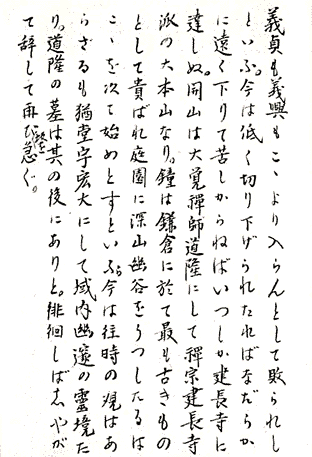 義貞も義興もこゝより入らんとして敗られし
といふ。今は低く切り下げられたればなだらか
に遠く下りて苦しからねばいつしか建長寺に
達しぬ。開山は大覚禅師道隆にして禅宗建長寺
派の大本山なり。鐘は鎌倉に於て最も古きもの
として貴ばれ庭園に深山幽谷をうつしたるは
こゝを次て始めとすといふ。今は往時の観はあ
らざるも猶堂宇宏大にして域内幽邃の霊境た
り。道隆の墓は其の後にありと。徘徊しばしやが
て辞して再び歩を急ぐ。